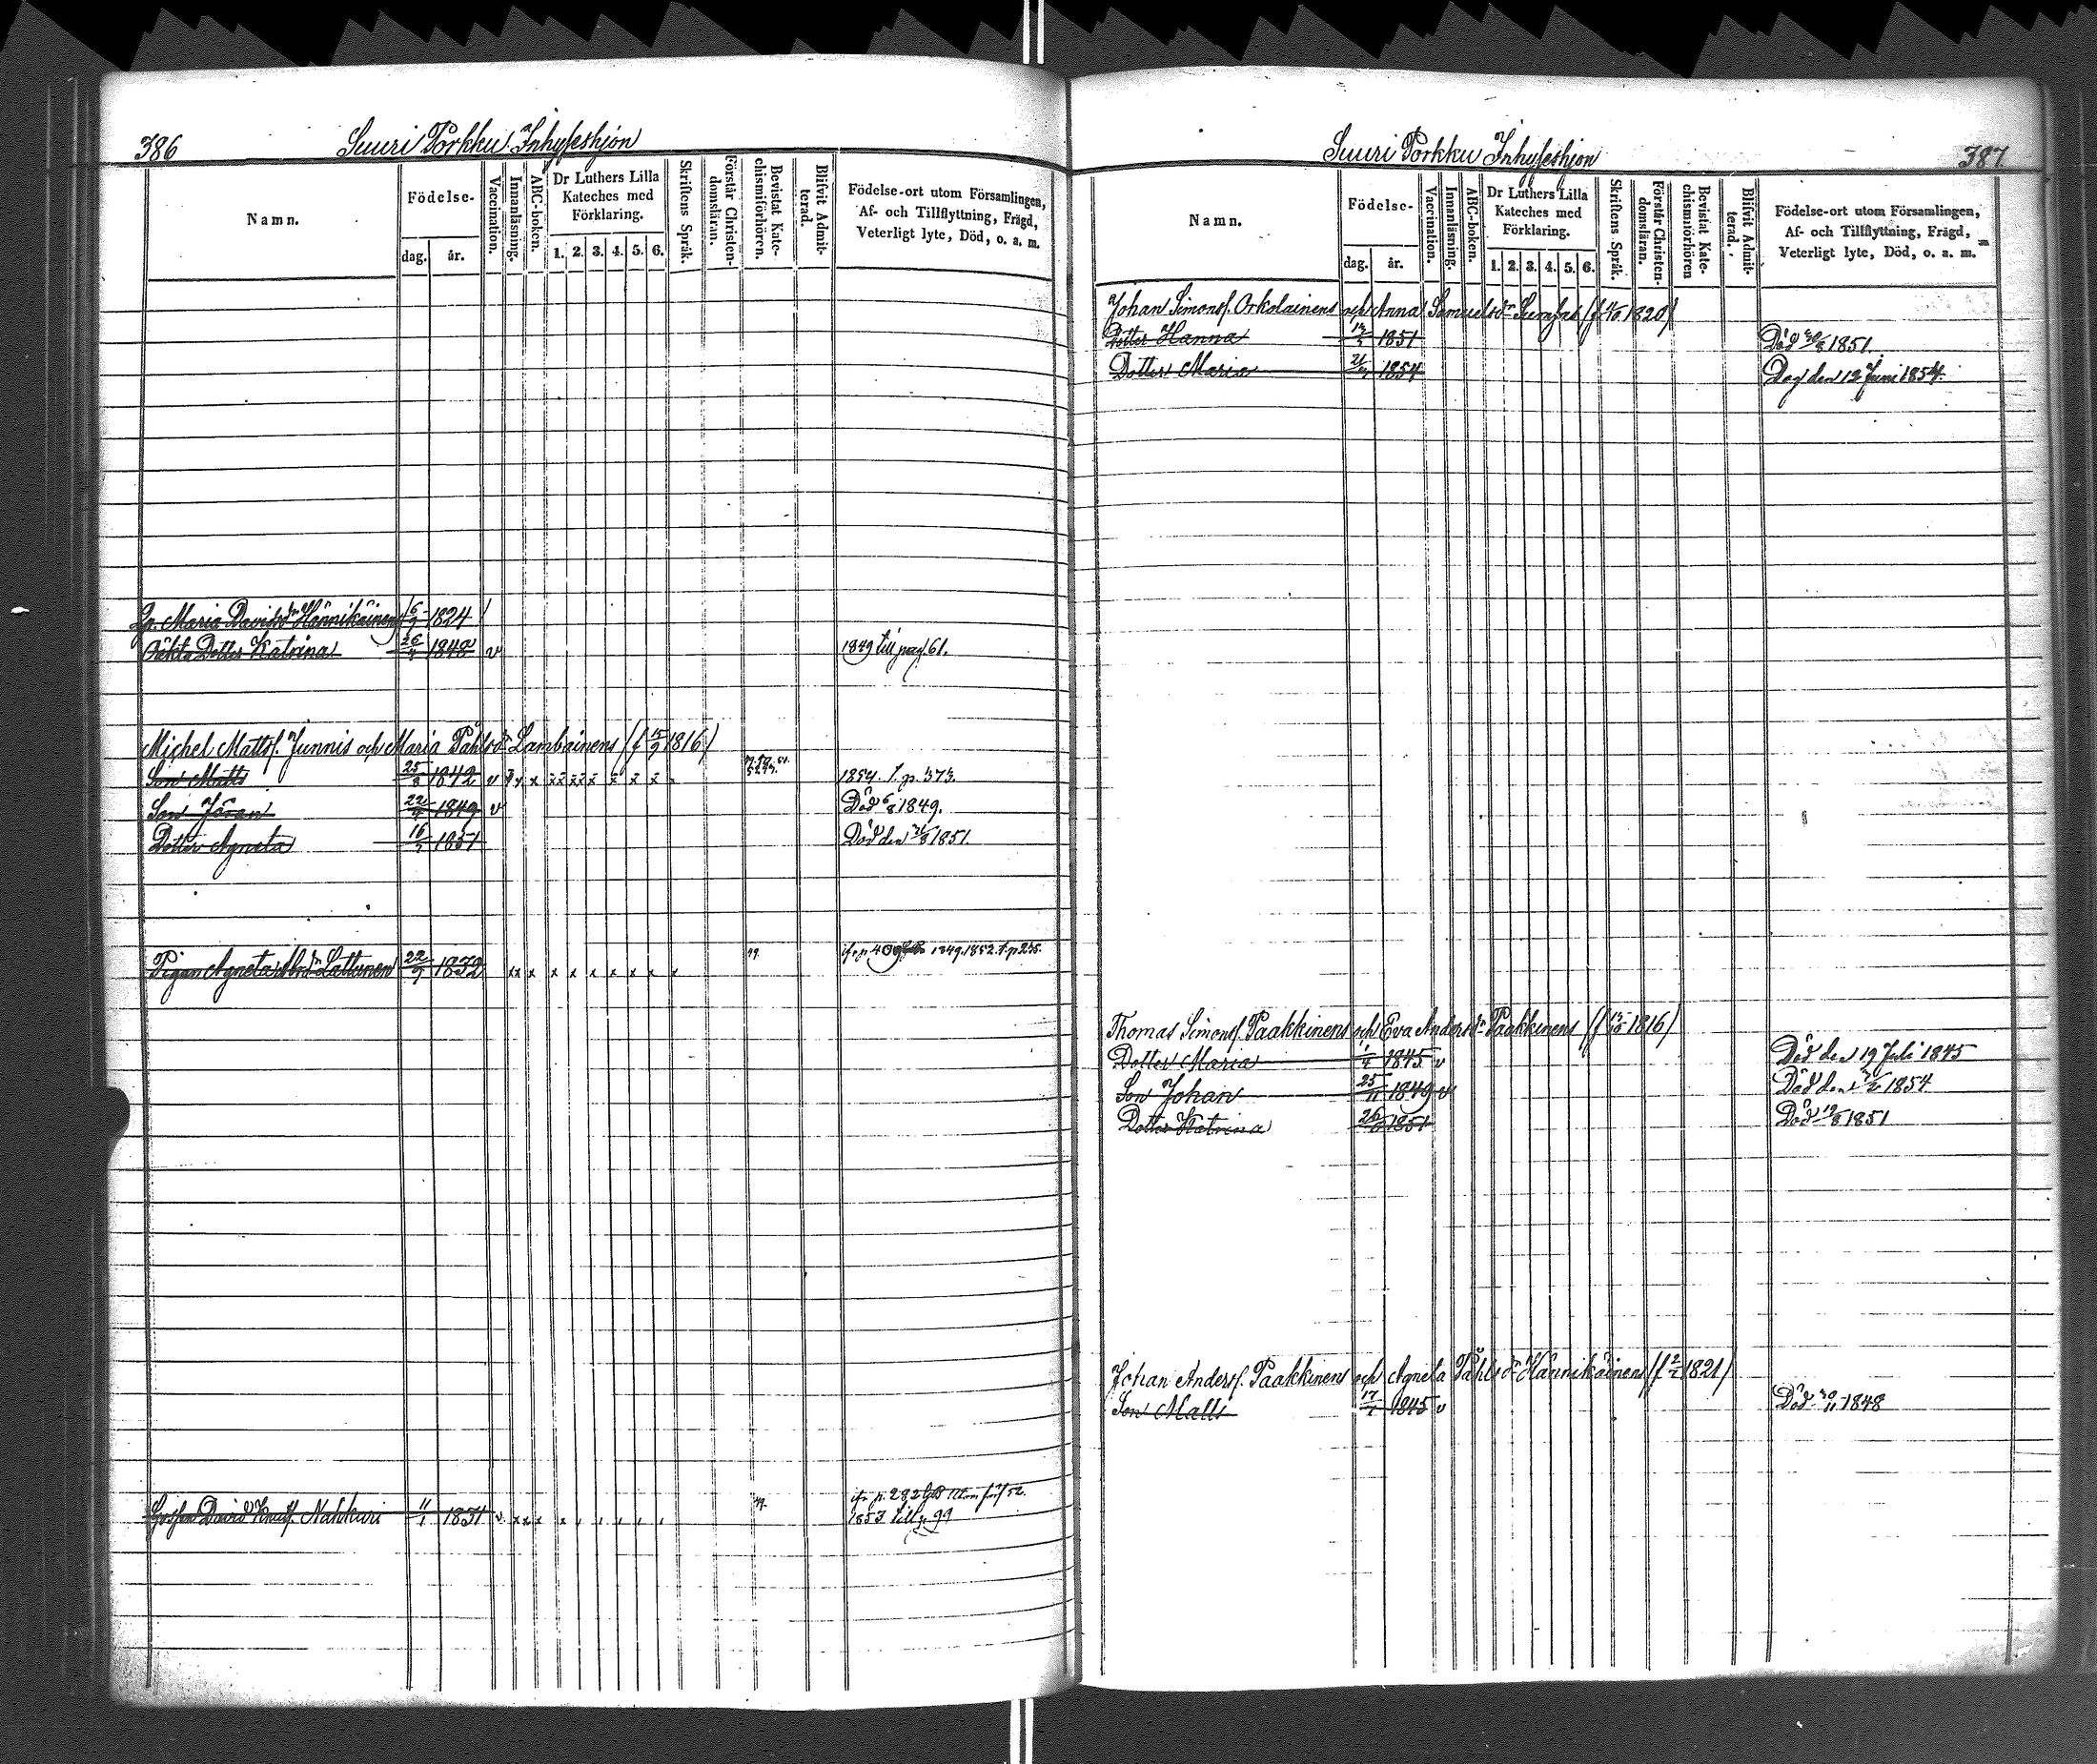 386 Suuri Porkku Inhyseshjon
Namn.
Födelse-
dag. år.
Vaccination.
Innanläsning.
ABC-boken.
Dr Luthers Lilla
Kateches med
Förklaring.
1. 2. 3. 4. 5. 6.
Skriftens Språk.
Förstår Christen-
domsläran.
Bevistat Kate-
chismiförhören.
Blifvit Admit-
terad.
Födelse-ort utom Församlingen,
Af- och Tillflyttning, Frägd,
Veterligt lyte, Död, o. a. m.
Maria Davidsdr Hännikäinen 6/9 1824
Oäkta Dotter Katrina 26/4 1848 v 1849 till pag. 61.
Michel Mattsf. Junnis och Maria Påhlsdr Lambainens (f 15/9 1816)
Son Matts 25/8 1842 v x x x x x x x x 1854. t. p. 373.
Son Jöran 22/4 1849 v Död 6/8 1849.
Dotter Agneta 16/5 1851 Död den 31/8 1851.
Pigan Agneta Lattunen 22/9 1832 x x x x x x x x x x 49. ifr. p. 409 1849. 1852. t. p. 235.
David Knutf. Nahkuri 11/1 1831 v x x x x 49. ifr. p. 282
1853 till p. 99
Suuri Porkku Inhyseshjon 387
Namn.
Födelse-
dag. år.
Vaccination.
Innanläsning.
ABC-boken.
Dr Luthers Lilla
Kateches med
Förklaring.
1. 2. 3. 4. 5. 6.
Skriftens Språk.
Förstår Christen-
domsläran.
Bevistat Kate-
chismiörhören
Blifvit Admit-
terad.
Födelse-ort utom Församlingen,
Af- och Tillflyttning, Frägd,
Veterligt lyte, Död, o. a. m.
Johan Simonsf. Orkolainens och Anna Samuelsdr 1820)
Dotter Hanna 1851 Död 1851.
Dotter Maria 1854 Död den 12 Juni 1854.
Thomas Simonsf. Paakkinens och Eva Andersdr Paakkinens 1816)
Dotter Maria 1/4 1845 v Död den 19 Juli 1845
Son Johan 25/11 1849 v Död den 1854
Dotter Katrina 1851 Död 19/8 1851
Johan Andersf. Paakkinens och Agneta Påhlsdr Hännikäinens 1821)
Son Matts 17/7 1845 v Död 30/11 1848